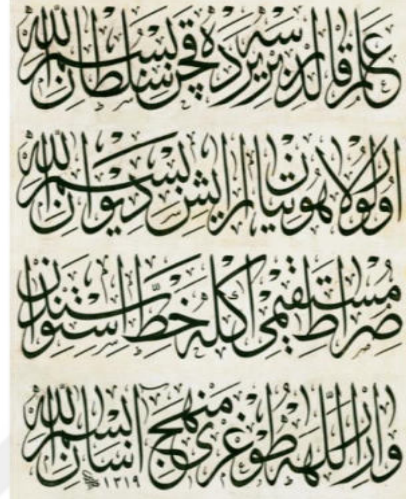 علم قالدرسه بر يرده قچن سلطان بسم الله
اولور لاهوتيان آرايش ديوان بسم الله
صراط مستقيمى آكله خط استواسندن
وارر اللهه طوغرى منهج آسان بسم الله ١٣١٩